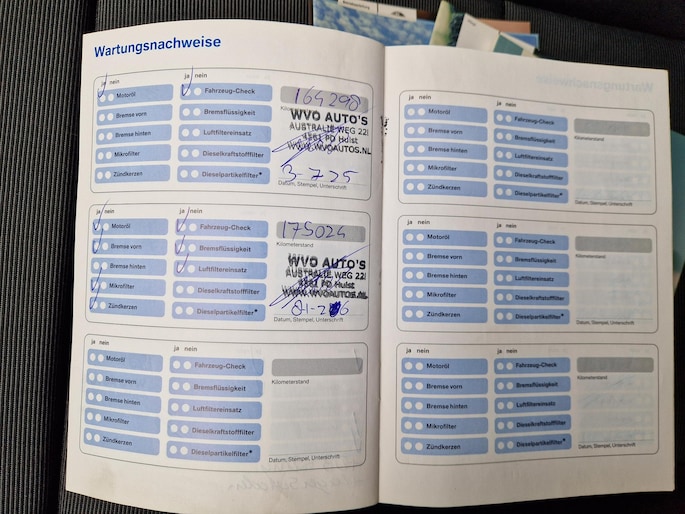 Wartungsnachweise
ja nein
ja nein
Motoröl
Fahrzeug-Check
164298
Bremse vorn
Bremsflüssigkeit
WVO AUTO'S
AUSTRALIEWEG 22
Bremse hinten
Luftfiltereinsatz
4561 PD Hulst
WWW.WVOAUTOS.NL
Mikrofilter
Dieselkraftstofffilter
Zündkerzen
Dieselpartikelfilter*
3-7-25
Datum, Stempel, Unterschrift
ja nein
ja nein
Motoröl
Fahrzeug-Check
175024
Kilometerstand
Bremse vorn
Bremsflüssigkeit
WVO AUTO'S
AUSTRALIEWEG 22
Bremse hinten
Luftfiltereinsatz
4561 PD Hulst
WWW.WVOAUTOS.NL
Mikrofilter
Dieselkraftstofffilter
Zündkerzen
Dieselpartikelfilter*
Datum, Stempel, Unterschrift
ja nein
ja nein
Motoröl
Fahrzeug-Check
Kilometerstand
Bremse vorn
Bremsflüssigkeit
Bremse hinten
Luftfiltereinsatz
Mikrofilter
Dieselkraftstofffilter
Zündkerzen
Dieselpartikelfilter*
Datum, Stempel, Unterschrift
ja nein
ja nein
Motoröl
Fahrzeug-Check
Kilometerstand
Bremse vorn
Bremsflüssigkeit
Bremse hinten
Luftfiltereinsatz
Mikrofilter
Dieselkraftstofffilter
Zündkerzen
Dieselpartikelfilter*
Datum, Stempel, Unterschrift
ja nein
ja nein
Motoröl
Fahrzeug-Check
Kilometerstand
Bremse vorn
Bremsflüssigkeit
Bremse hinten
Luftfiltereinsatz
Mikrofilter
Dieselkraftstofffilter
Zündkerzen
Dieselpartikelfilter*
Datum, Stempel, Unterschrift
ja nein
ja nein
Motoröl
Fahrzeug-Check
Kilometerstand
Bremse vorn
Bremsflüssigkeit
Bremse hinten
Luftfiltereinsatz
Mikrofilter
Dieselkraftstofffilter
Zündkerzen
Dieselpartikelfilter*
Datum, Stempel, Unterschrift